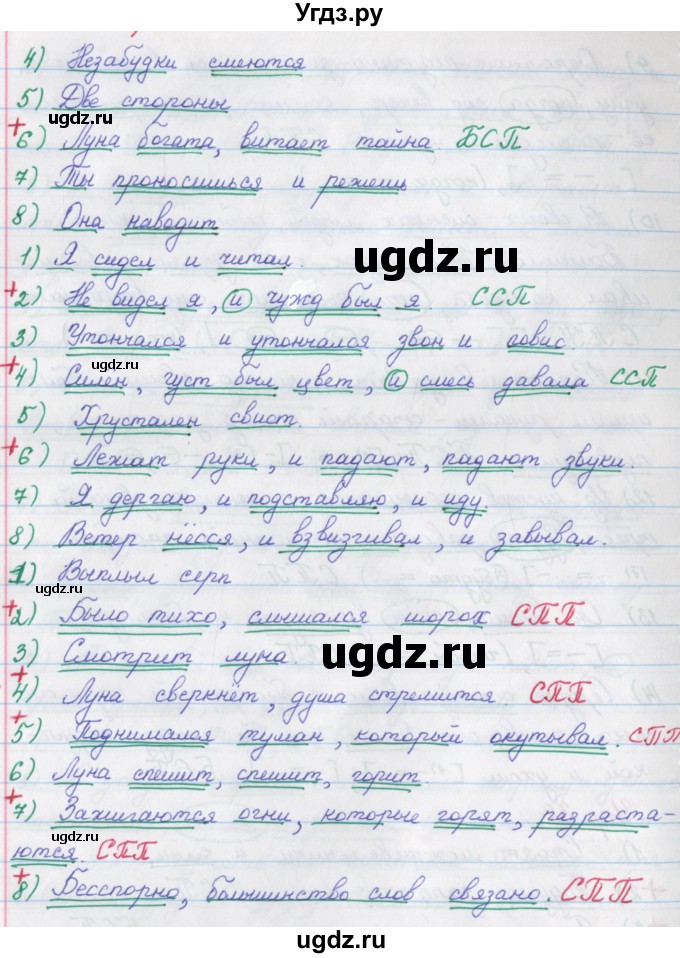 Угдз.ру
4) Незабудки смеются
5) Две стороны
ugdz.ru
+ 6) Луна богата, витает тайна. БСП
7) Ты проносишься и режешь
ugdz.ru
8) Она наводит
1) Я сидел и читал.
ugdz.ru
+ 2) Не видел я, и чужд был я. ССП
ugdz.ru
3) Утончался и утончался звон и повис.
ugdz.ru
+ 4) Силен, густ был цвет, и смесь давала ССП
5) Хрустален свист.
+ 6) Лежат руки, и падают, падают звуки.
ugdz.ru
7) Я дергаю, и подставляю, и иду.
8) Ветер нёсся, и взвизгивал, и завывал.
ugdz.ru
1) Выплыл серп
+ 2) Было тихо, слышался шорох СПП
3) Смотрит луна.
ugdz.ru
ugdz.ru
+ 4) Луна сверкнёт, душа стремится. СПП
+ 5) Поднимался туман, который окутывал. СПП
6) Луна спешит, спешит, горит.
+ 7) Зажигаются огни, которые горят, разраста-
ugdz.ru
ются. СПП
+ 8) Бесспорно, большинство слов связано. СПП
ugdz.ru
ugdz.ru